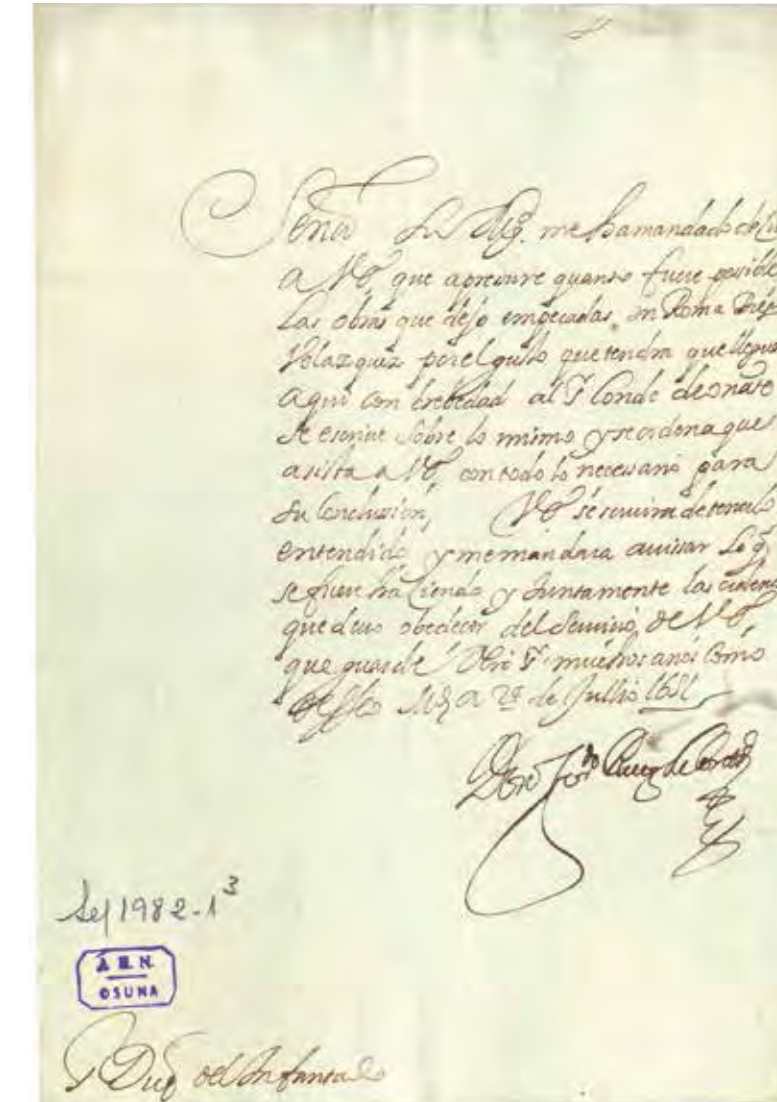 Señor Su Mg. me ha mandado deci
a VE. que apresure quanto fuere posible
Las obras que dejo empeçadas en Roma Dieg
Velazquez por el gusto que tendra que llegue
aqui con brebedad al Sr Conde de oñate
se escriue sobre lo mismo y se ordena que
asista a VE. con todo lo necesario para
su Conclusion, VE se seruira de tenerlo
entendido y me mandara auisar Lo q
se fuere haciendo y Juntamente las ordens
que deuo obedecer del Seruicio de VE,
que guarde Dios Sr muchos años Como
desseo Md a de Jullio 1651
Ruiz de
Leg 1982-1 3
A.H.N.
OSUNA
Sr Duq del Infantado